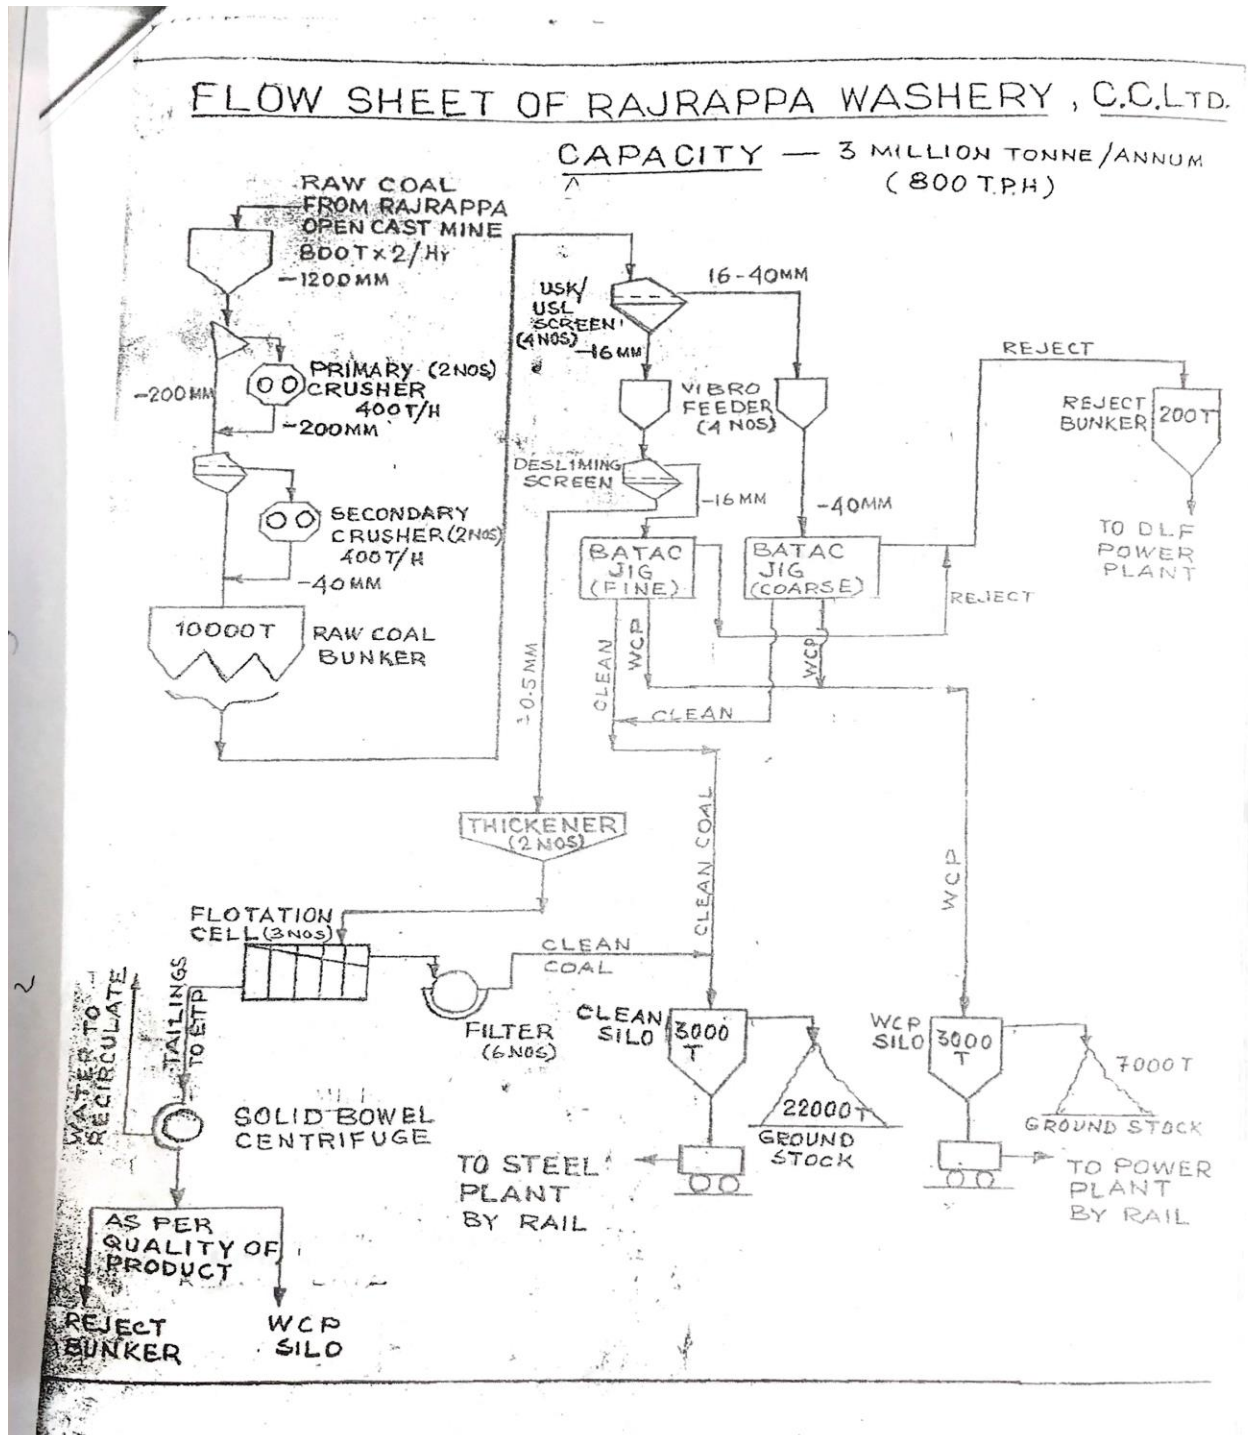 FLOW SHEET OF RAJRAPPA WASHERY, C.C.LTD.
CAPACITY — 3 MILLION TONNE/ANNUM
(800 T.P.H)
RAW COAL
FROM RAJRAPPA
OPEN CAST MINE
800T×2/Hr
-1200MM
PRIMARY (2NOS)
CRUSHER
400T/H
-200MM
-200MM
SECONDARY
CRUSHER (2NOS)
400T/H
-40MM
10000T
RAW COAL
BUNKER
USK/
USL
SCREEN
(4NOS)
-16MM
16-40MM
VIBRO
FEEDER
(4 NOS)
DESLIMING
SCREEN
-16MM
-40MM
BATAC
JIG
(FINE)
BATAC
JIG
(COARSE)
REJECT
REJECT
REJECT
BUNKER
200T
TO DLF
POWER
PLANT
-0.5MM
CLEAN
WCP
WCP
CLEAN
THICKENER
(2 NOS)
CLEAN COAL
WCP
FLOTATION
CELL (3NOS)
CLEAN
COAL
FILTER
(6NOS)
TAILINGS
TO ETP
WATER TO
RECIRCULATE
SOLID BOWEL
CENTRIFUGE
CLEAN
SILO
3000
T
22000T
GROUND
STOCK
WCP
SILO
3000
T
7000T
GROUND STOCK
TO STEEL
PLANT
BY RAIL
TO POWER
PLANT
BY RAIL
AS PER
QUALITY OF
PRODUCT
REJECT
BUNKER
WCP
SILO
2